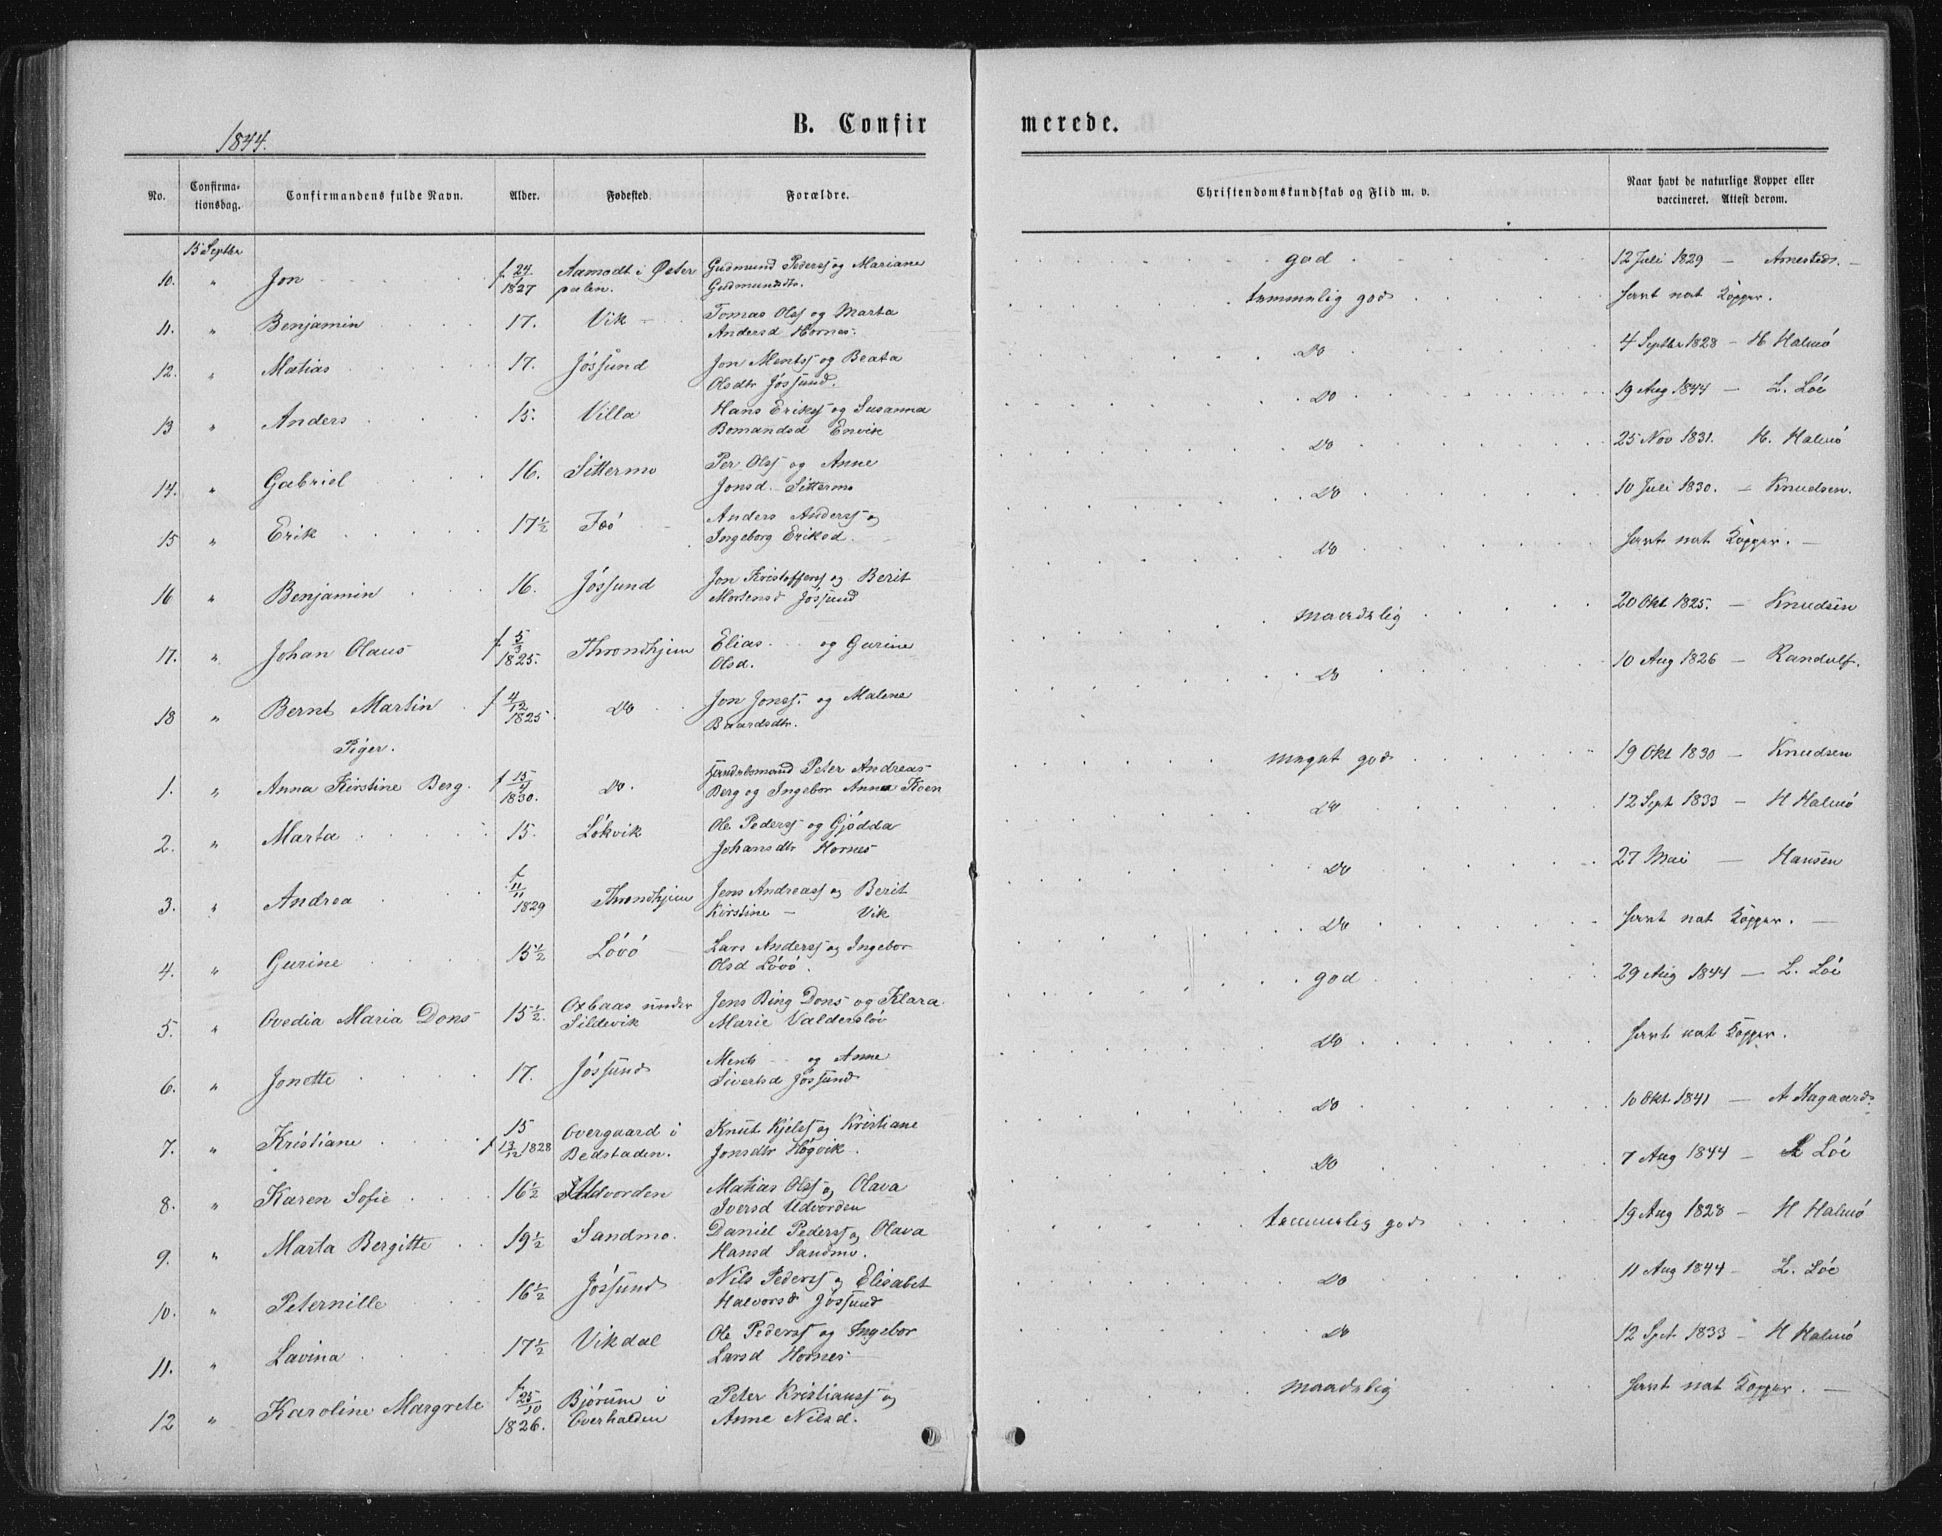 1844.
B. Confirmerede.
No. Confirmationsdag. Confirmandens fulde Navn. Alder. Fødested. Forældre. Christendomskundskab og Flid m. v. Naar havt de naturlige Kopper eller vaccineret. Attest derom.
15 Septbr
10. " Jon f. 24/1 1827 Aamodt i Øster Gudmund Pederss og Mariane god 12 Juli 1829 –
dalen. Gudmundsdtr.
11. " Benjamin 17. Vik Tomas Olss og Marta temmelig god havt nat Kopper.
Andersd Hornes.
12. " Matias 17. Jøssund Jon Mentss og Beata Do 4 Septbr 1828 – H Halmø
Olsdtr Jøssund.
13 " Anders 15. Villa Hans Erikss og Susanna Do 19 Aug 1844 – L. Løe
Bomandsd Envik
14. " Gabriel 16. Sittermo Per Olss og Anne Do 25 Nov 1831. H. Halmø
Jonsd. Sittermo
15 " Erik 17½ Anders Anderss og Do 10 Juli 1830. – Knudsen.
Ingeborg Eriksd.
16 " Benjamin 16. Jøssund Jon Kristofferss og Berit Do havt nat Kopper. –
Mortensd Jøssund
17. " Johan Olaus f 5/3 1825. Throndhjem Elias og Gurine maadelig 20 Okt 1825. – Knudsen
Olsd.
18 " Bernt Martin f 4/12 1825. Do Jon Jonss. og Malene Do 10 Aug 1826 – Randulf.
Baardsdtr.
Piger.
1. " Anna Kirstine Berg. f 15/4 1830. Do. Handelsmand Peter Andreas meget god 19 Okt 1830 – Knudsen
Berg og Ingebor Anna Koen
2. " Marta 15. Løkvik Ole Pederss og Gjødda Do 12 Sept 1833 – H Halmø
Johansdtr Hornes
3. " Andrea f 11/11 1829 Throndhjem Jens Andreass og Berit Do 27 Mai – Hansen
Kirstine – Vik
4. " Gurine 15½ Løvø Lars Anderss og Ingebor Do havt nat Kopper. –
Olsd Løvø.
5. " Ovedia Maria Dons 15½. Oxbaas under Jens Bing Dons og Klara god 29 Aug 1844 – L. Løe
Sildevik Marie Valdersløv
6. " Jonette 17. Jøssund Ments og Anne Do havt nat Kopper.
Sivertsd Jøssund
7. " Kristiane 15 f 13/12 1828 Overgaard i Knut Kjelss og Kristiane Do 10 Okt 1841 – A Aagaard.
Bedstaden. Jonsdtr Høgvik.
8. " Karen Sofie 16½ Udvorden Matias Olss og Olava Do 7 Aug 1844 – L Løe
Iversd Udvorden
9. " Marta Bergitte 19½ Sandmo. Daniel Pederss og Olava temmelig god 19 Aug 1828 – H Halmø
Hansd Sandmo.
10. " Peternille 16½ Jøssund Nils Pederss og Elisabet Do 11 Aug 1844 – L. Løe
Halvorsd Jøssund
11. " Lavina 17½ Vikdal Ole Pederss og Ingebor Do 12 Spt 1833 – H Halmø
Larsd Hornes
12 " Karoline Margrete f 25/10 1826. Bjørum i Peter Kristianss og maadelig havt nat Kopper. –
Overhalden Anne Nilsd.